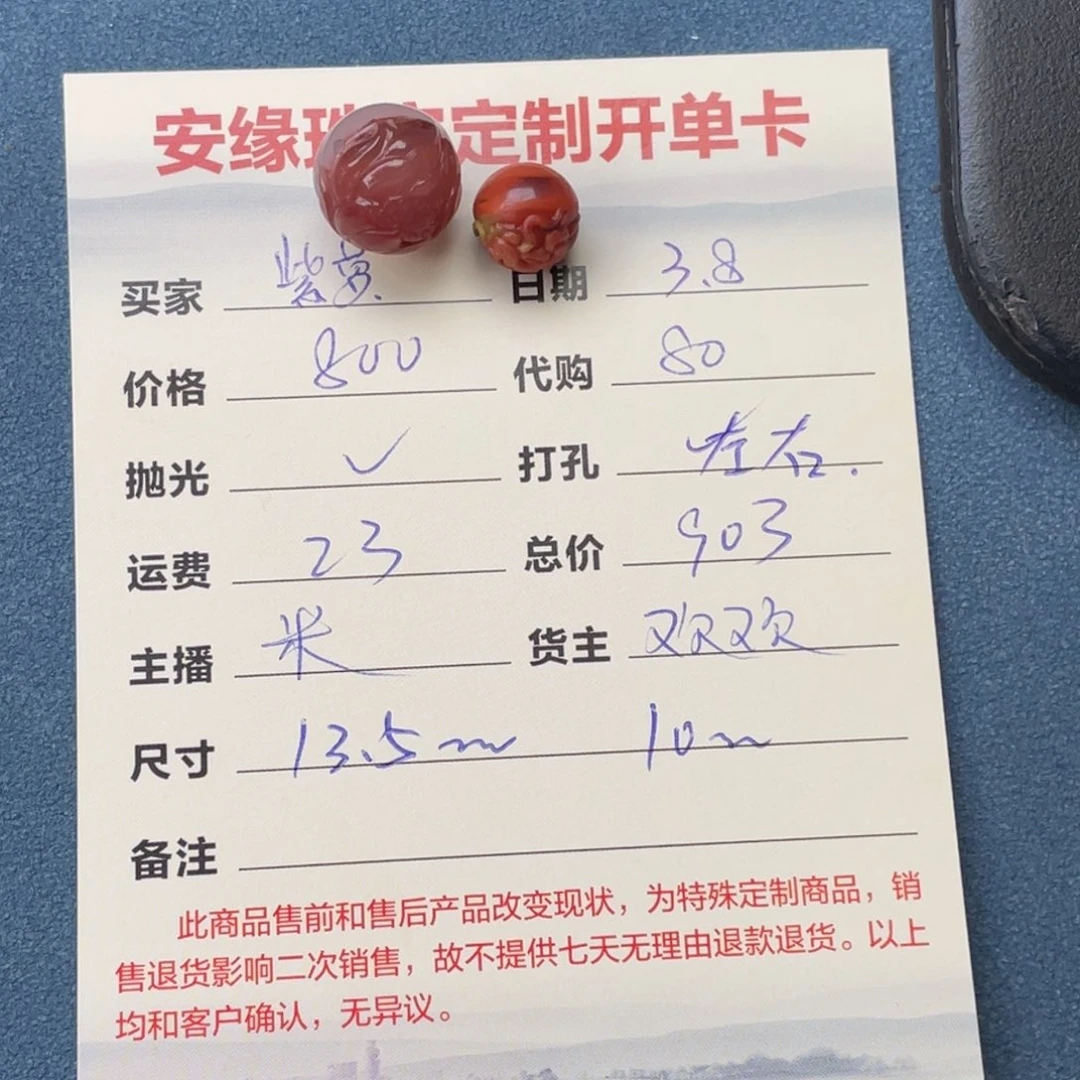 安缘珠宝定制开单卡
买家 紫萸 日期 3.8
价格 800 代购 80
抛光 ✓ 打孔 左右.
运费 23 总价 903
主播 米 货主 欢欢
尺寸 13.5m 10m
备注
此商品售前和售后产品改变现状，为特殊定制商品，销
售退货影响二次销售，故不提供七天无理由退款退货。以上
均和客户确认，无异议。